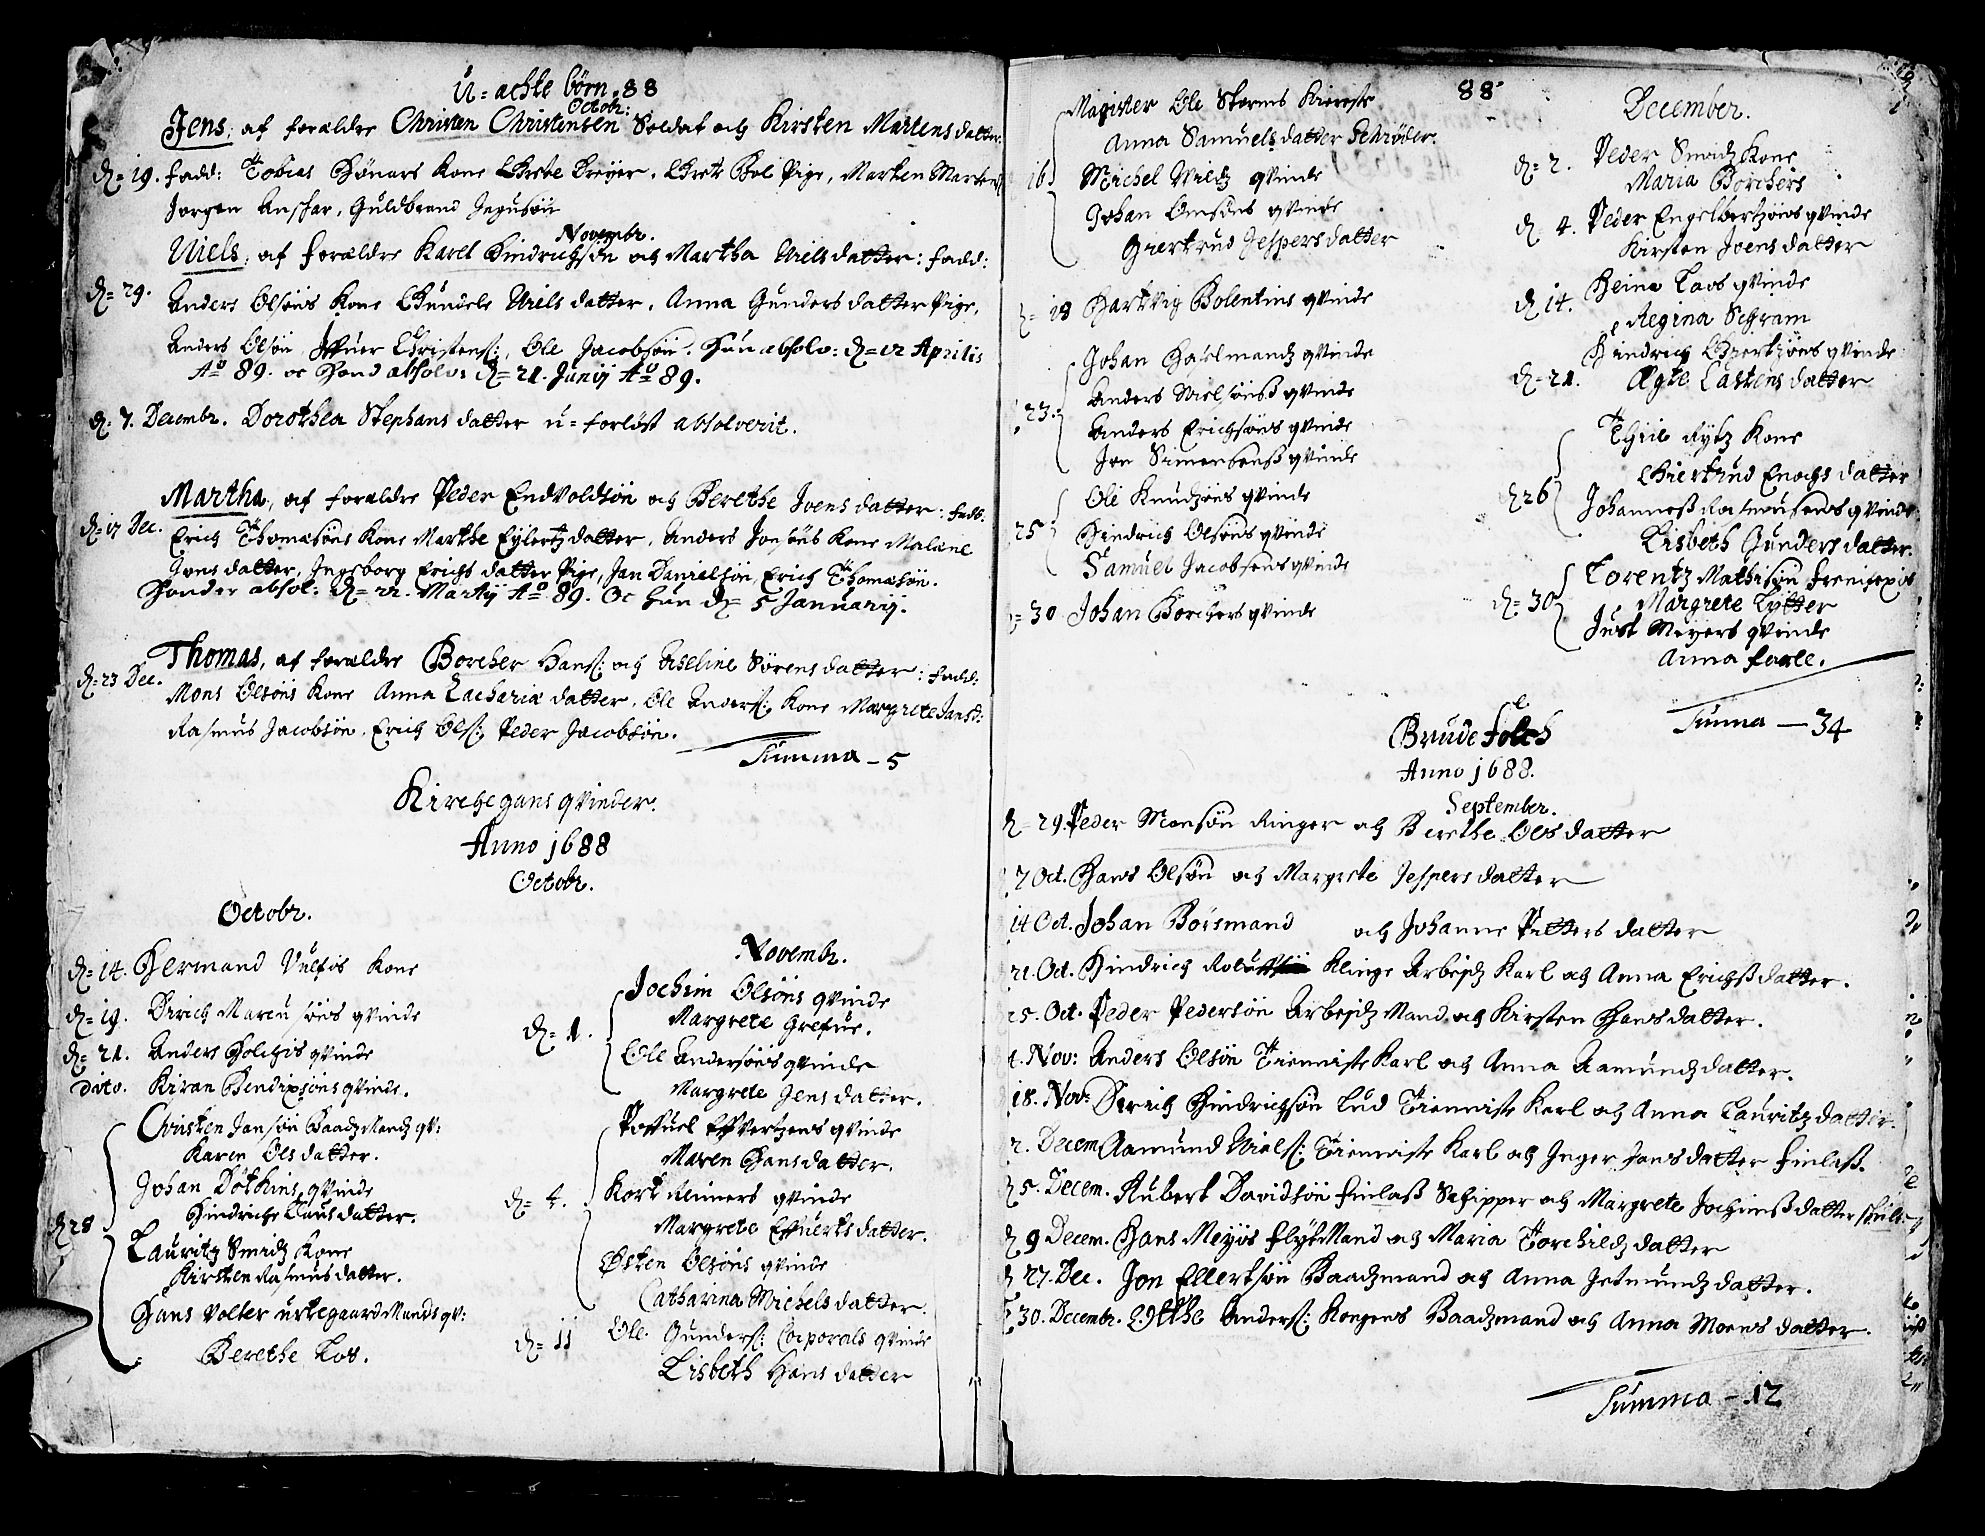 U=achte børn 88
Octobr:
Jens, af forældre Christen Christensen Soldat och Kirsten Martens datter.
d= 19. fadd: Tobias Hønars Kone Grete Dreyer, Gret Bol Pige, Marten Martens
Jørgen Anskar, Guldbrand Ingusøn
Novembr.
Niels, af forældre Karel Hindrichsøn och Martha Niels datter: fadd:
d= 29. Anders Olsøns Kone Gundele Niels datter, Anna Gunders datter Pige,
Anders Olsøn, Iffuer Christens:, Ole Jacobsøn. Hun absolv: d= 12 Aprilis
Ao 89. oc Hand absolv: d= 21. Junij Ao 89.
d= 7. Decembr. Dorothea Stephans datter u=forløst absolverit.
Martha, af forældre Peder Endvoldsøn och Berethe Joens datter: fadd:
d= 17 Dec. Erich Thomæsøns Kone Marthe Eylertz datter, Anders Jonsøns Kone Malene
Joens datter, Ingeborg Erichs datter Pige, Jan Danielsøn, Erich Thomæsøn.
Hand er absol: d= 22. Martij Ao 89. Oc hun d= 5 Januarij.
Thomas, af forældre Borcher Hans: och Aseline Sørens datter: fadd:
d= 23 Dec. Mons Olsøns Kone Anna Zachariæ datter, Ole Anders: Kone Margrete Jansd:
Rasmus Jacobsøn, Erich Ols: Peder Jacobsøn.
Summa - 5
Kirchegans qvinder.
Anno 1688
Octobr.
Octobr.
d= 14. Hermand Vulfs Kone
d= 19. Dirich Marcusøns qvinde
d= 21. Anders Holchis qvinde
dito. Kiran Bendixsøns qvinde.
Christen Jansøn Baadzmandz qv:
Karen Ols datter.
Johan Døthins qvinde
Hindriche Claus datter.
d 28 Lauritz Smidz Kone
Kirsten Rasmus datter.
Hans Volter urtegaard Mands qv:
Berethe Los.
Novembr.
d= 1. Jochim Olsøns qvinde
Margrete Grefue.
Ole Andersøns qvinde
Margrete Jens datter.
Poffuel Effvertzens qvinde
Maren Hans datter.
d= 4. Kort Reiners qvinde
Margrete Effuerts datter.
Østen Olsøns qvinde
Catharina Michels datter.
d= 11 Ole Gunders: Corporals qvinde
Lisbeth Hans datter
88
Magister Ole Storms Kiereste
Anna Samuels datter Schrøder.
16 Michel Vildz qvinde
Johan Omsøns qvinde
Giertrud Jespers datter
d= 18 Hartvig Bolentins qvinde
Johan Hatelmandz qvinde
23. Anders Nielsøns qvinde
Anders Erichsøns qvinde
Jon Simensens qvinde
Ole Knudzøns qvinde
25 Hindrich Olsøns qvinde
Samuel Jacobsens qvinde
d= 30 Johan Borchers qvinde
December.
d= 2. Peder Smidz Kone
Maria Borchers
d= 4. Peder Engelbertzøns qvinde
Kirsten Joens datter
d 14. Heine Taos qvinde
Regina Schram
Hindrich Evertzøns qvinde
d= 21. Ægte Castens datter
Thiis Rytz Kone
Giertrud Enochs datter
d 26 Johannes Rasmusens qvinde
Lisbeth Gunders datter.
Lorentz Mathisøn
d= 30 Margrete Lytter
Just Meyers qvinde
Anna farle.
Summa - 34
Brude folch
Anno 1688.
September.
d= 29. Peder Monsøn Ringer och Berethe Ols datter
7 Oct. Hans Olsøn och Margrete Jespers datter
14 Oct. Johan Borsmand och Johanne Petters datter
21. Oct. Hindrich Klinge Arbejdz Karl och Anna Erichs datter.
25. Oct. Peder Pedersøn Arbejdz Mand och Kirsten Hans datter.
4. Nov: Anders Olsøn Tienniste Karl och Anna Aamundz datter.
18. Nov: Dirich Hindrichsøn Lud Tienniste Karl och Anna Lauritz datter.
2. Decem. Aamund Niels: Tienniste Karl och Inger Jans datter Finlass.
5. Decem. Aubert Davidsøn Finlass Schipper och Margrete Jochims datter
d 9 Decem. Hans Meyis flyt Mand och Maria Torchildz datter
d 27. Dec. Jon Ellertsøn Baadzmand och Anna Jetmundz datter.
30. Decembr. Otthe Anders: Kongens Baadzmand och Anna Moens datter.
Summa - 12